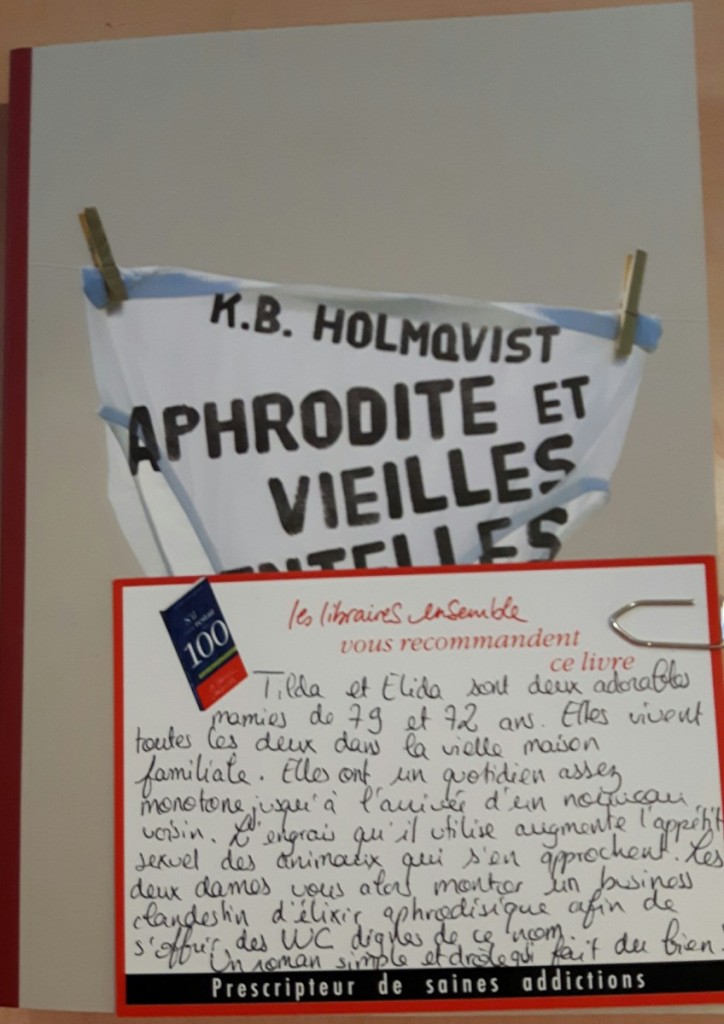 K.B. HOLMQVIST
APHRODITE ET
VIEILLES
ENTELLES
les libraires ensemble
vous recommandent
ce livre
100
Tilda et Elida sont deux adorables
mamies de 79 et 72 ans. Elles vivent
toutes les deux dans la vielle maison
familiale. Elles ont un quotidien assez
monotone jusqu'à l'arrivée d'un nouveau
voisin. L'engrais qu'il utilise augmente l'appétit
sexuel des animaux qui s'en approchent. Les
deux dames vous alors monter un business
clandestin d'élixir aphrodisique afin de
s'offrir des WC dignes de ce nom.
Un roman simple et drole qui fait du bien!
Prescripteur de saines addictions